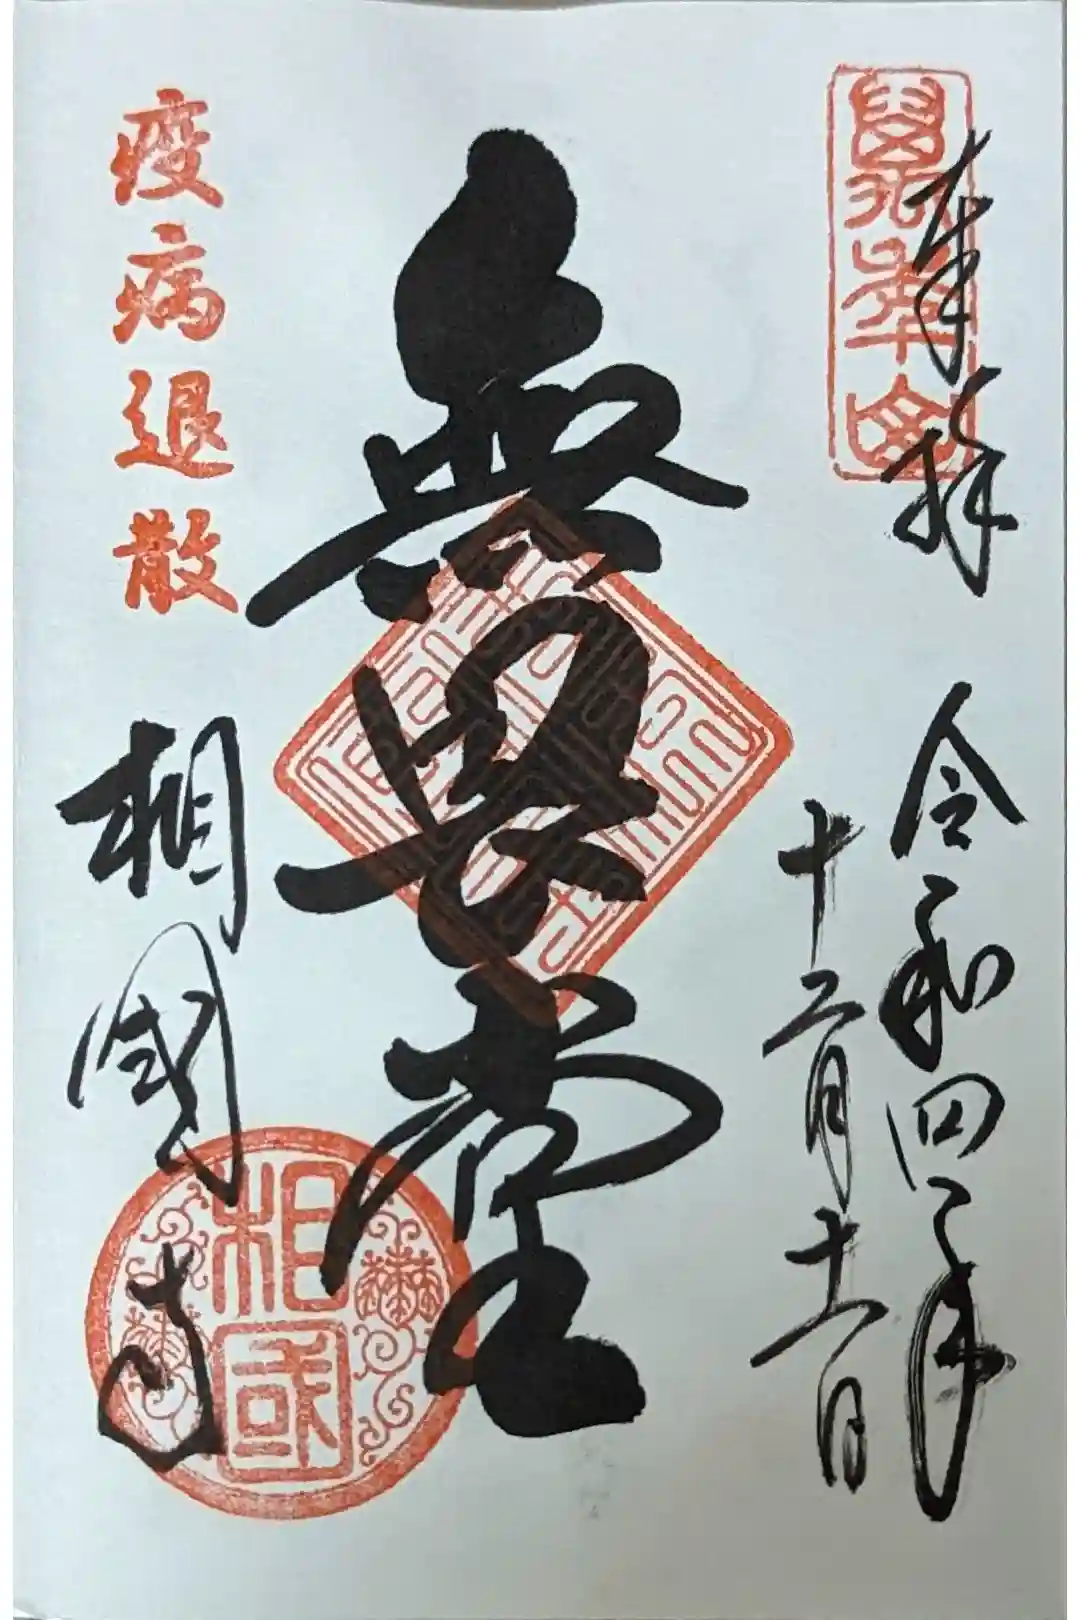 奉拝
令和四年
十二月十一日
無畏堂
疫病退散
相國寺
相国